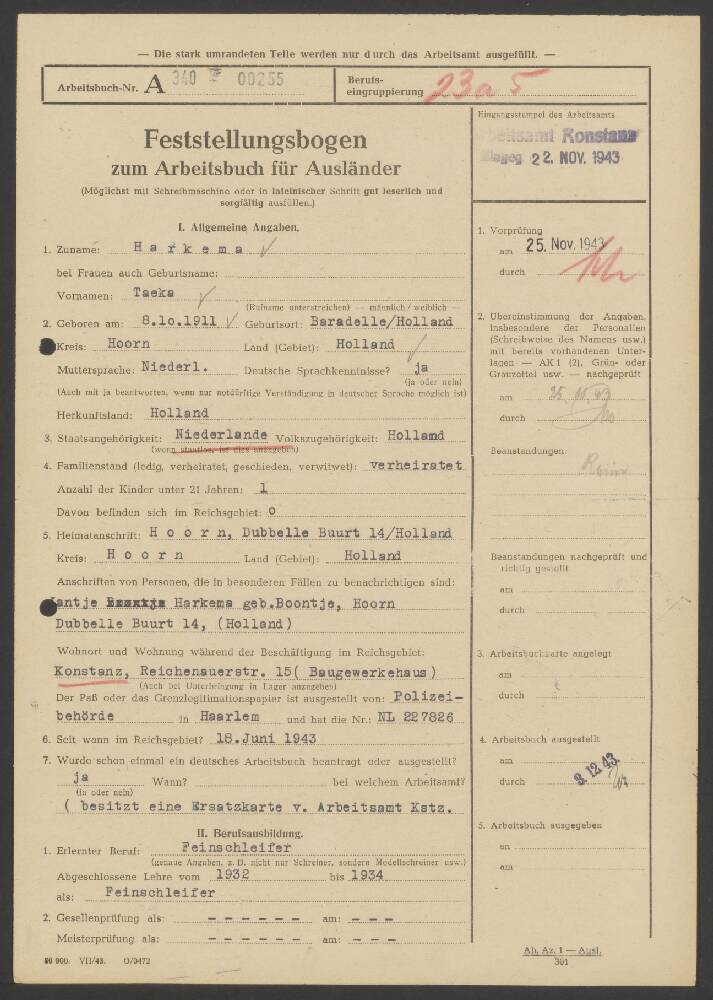 — Die stark umrandeten Teile werden nur durch das Arbeitsamt ausgefüllt. —
Arbeitsbuch-Nr. A 340 00255
Berufs-
eingruppierung 23a5
Eingangsstempel des Arbeitsamts
Arbeitsamt Konstanz
Eingeg 22. NOV. 1943
Feststellungsbogen
zum Arbeitsbuch für Ausländer
(Möglichst mit Schreibmaschine oder in lateinischer Schrift gut leserlich und
sorgfältig ausfüllen.)
I. Allgemeine Angaben.
1. Zuname: Harkema
bei Frauen auch Geburtsname:
Vornamen: Taeka
(Rufname unterstreichen) — männlich / weiblich —
2. Geboren am: 8.10.1911 Geburtsort: Baradelle/Holland
Kreis: Hoorn Land (Gebiet): Holland
Muttersprache: Niederl. Deutsche Sprachkenntnisse? ja
(ja oder nein)
(Auch mit ja beantworten, wenn nur notdürftige Verständigung in deutscher Sprache möglich ist)
Herkunftsland: Holland
3. Staatsangehörigkeit: Niederlande Volkszugehörigkeit: Holland
(wenn staatlos, ist dies anzugeben)
4. Familienstand (ledig, verheiratet, geschieden, verwitwet): verheiratet
Anzahl der Kinder unter 21 Jahren: 1
Davon befinden sich im Reichsgebiet: 0
5. Heimatanschrift: Hoorn, Dubbelle Buurt 14/Holland
Kreis: Hoorn Land (Gebiet): Holland
Anschriften von Personen, die in besonderen Fällen zu benachrichtigen sind:
antje Harkema geb.Boontje, Hoorn
Dubbelle Buurt 14, (Holland)
Wohnort und Wohnung während der Beschäftigung im Reichsgebiet:
Konstanz, Reichenauerstr. 15( Baugewerkehaus)
(Auch bei Unterbringung in Lager anzugeben)
Der Paß oder das Grenzlegitimationspapier ist ausgestellt von: Polizei-
behörde in Haarlem und hat die Nr.: NL 227826
6. Seit wann im Reichsgebiet? 18.Juni 1943
7. Wurde schon einmal ein deutsches Arbeitsbuch beantragt oder ausgestellt?
ja Wann? bei welchem Arbeitsamt?
(ja oder nein)
( besitzt eine Ersatzkarte v. Arbeitsamt Kstz.
II. Berufsausbildung.
1. Erlernter Beruf: Feinschleifer
(genaue Angaben, z. B. nicht nur Schreiner, sondern Modellschreiner usw.)
Abgeschlossene Lehre vom 1932 bis 1934
als: Feinschleifer
2. Gesellenprüfung als: — — — — — — am: — — —
Meisterprüfung als: — — — — — — am: — — —
90 000. VII/43. O/0472
1. Vorprüfung
am 25. Nov. 1943
durch
2. Übereinstimmung der Angaben,
insbesondere der Personalien
(Schreibweise des Namens usw.)
mit bereits vorhandenen Unter-
lagen — AK 1 (2), Grün- oder
Grauzettel usw. — nachgeprüft
am
durch
Beanstandungen:
Beanstandungen nachgeprüft und
richtig gestellt
am
durch
3. Arbeitsbuchkarte angelegt
am
durch
4. Arbeitsbuch ausgestellt
am
durch 3. 12. 43
5. Arbeitsbuch ausgegeben
an
am
Ab. Az. 1 — Ausl.
301